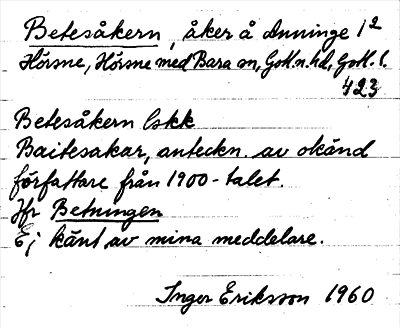 Betesåkern, åker å Anninge 1²
Hörsne, Hörsne med Bara sn, Gotl.n.hd, Gotl. l.
423
Betesåkern lskk
Baitesakar, anteckn. av okänd
författare från 1900-talet.
Jfr Betningen
Ej känt av mina meddelare.
Inger Eriksson 1960